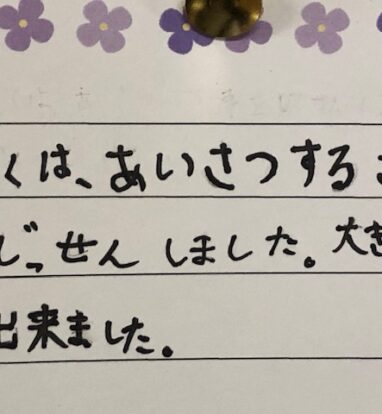 くは、あいさつする
じっせんしました。大き
出来ました。